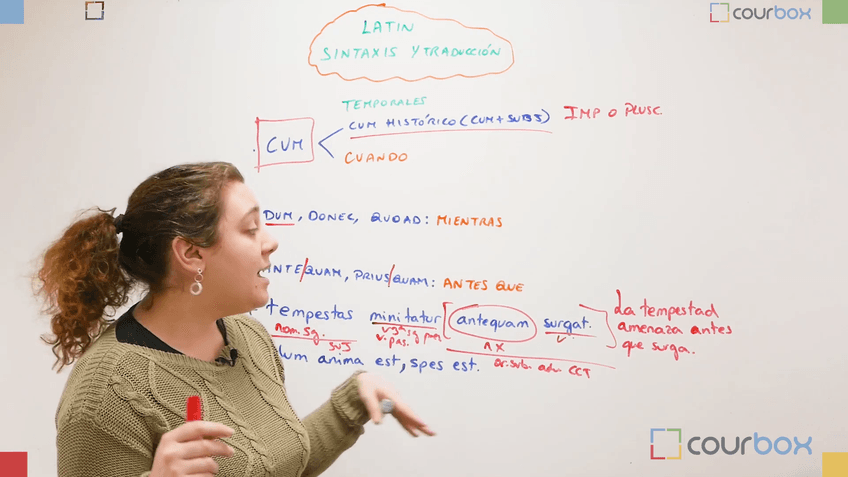 courbox
LATIN
SINTAXIS Y TRADUCCIÓN
TEMPORALES
CUM HISTÓRICO (CUM + SUBJ) IMP O PLUSC.
CUM
CUANDO
DUM, DONEC, QUOAD: MIENTRAS
ANTE/QUAM, PRIUS/QUAM: ANTES QUE
tempestas minitatur [antequam surgat.] La tempestad
amenaza antes
que surga.
nom. sg. SUJ v. pas. V
NX
Or. sub. adv. CCT
dum anima est, spes est.
courbox